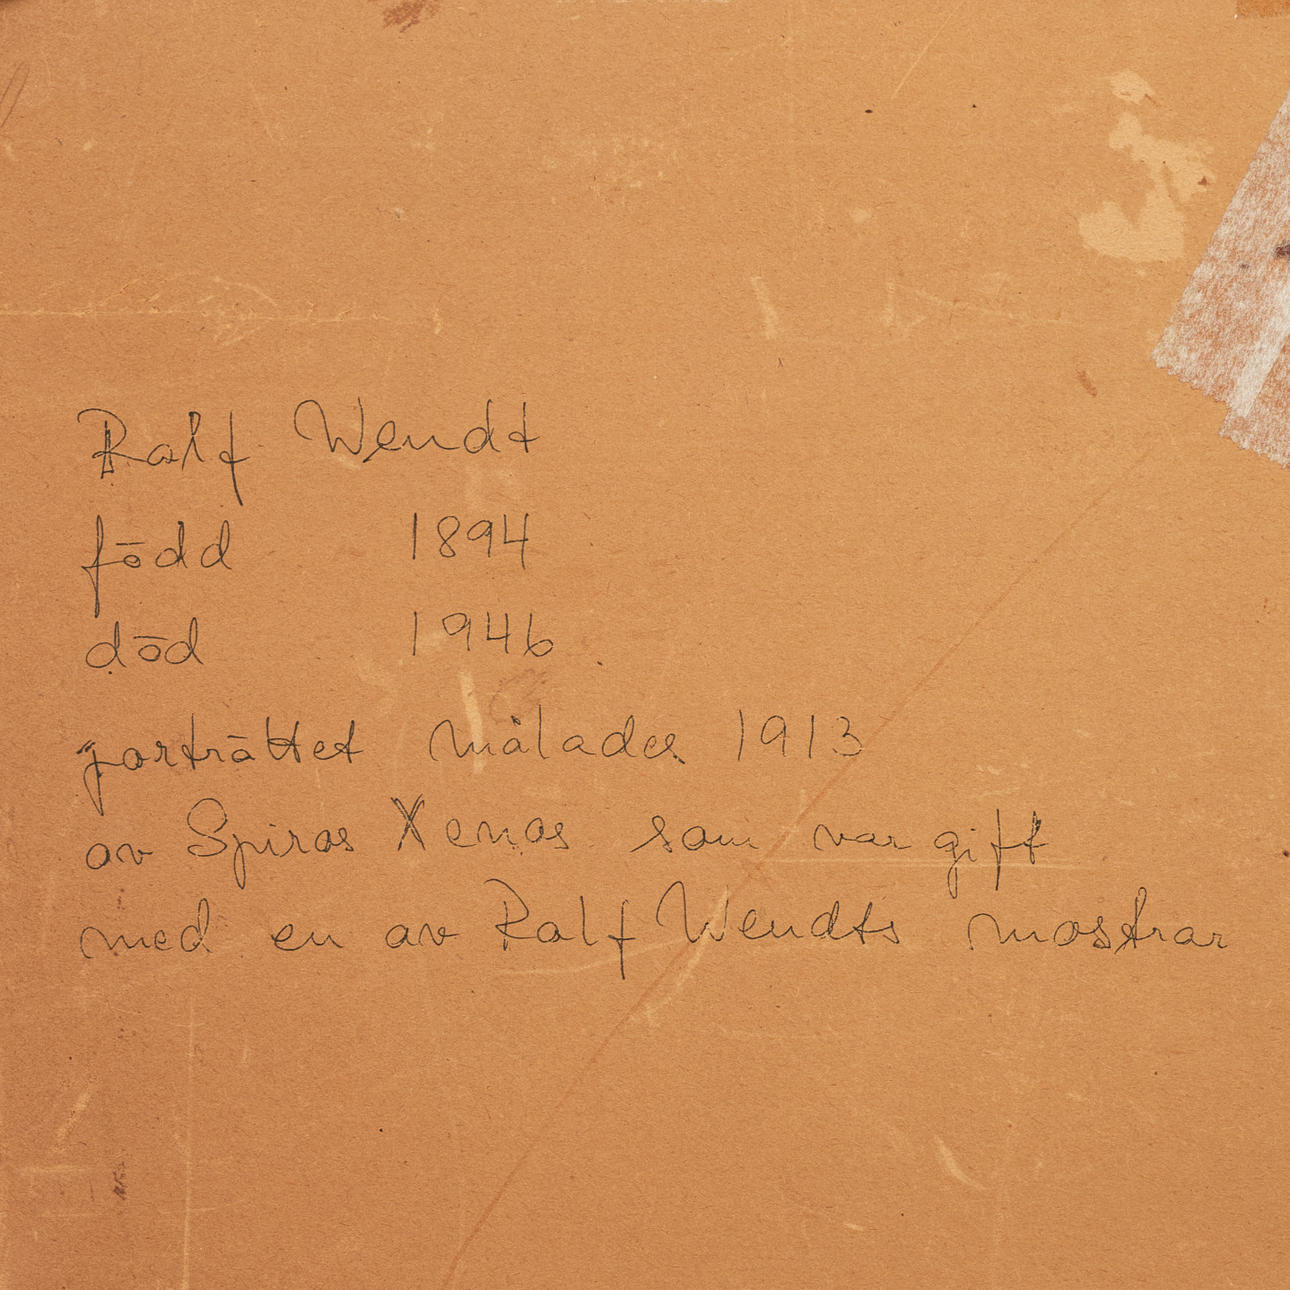 Ralf Wendt
född 1894
död 1946
porträttet målades 1913
av Spiros Xenos som var gift
med en av Ralf Wendts mostrar